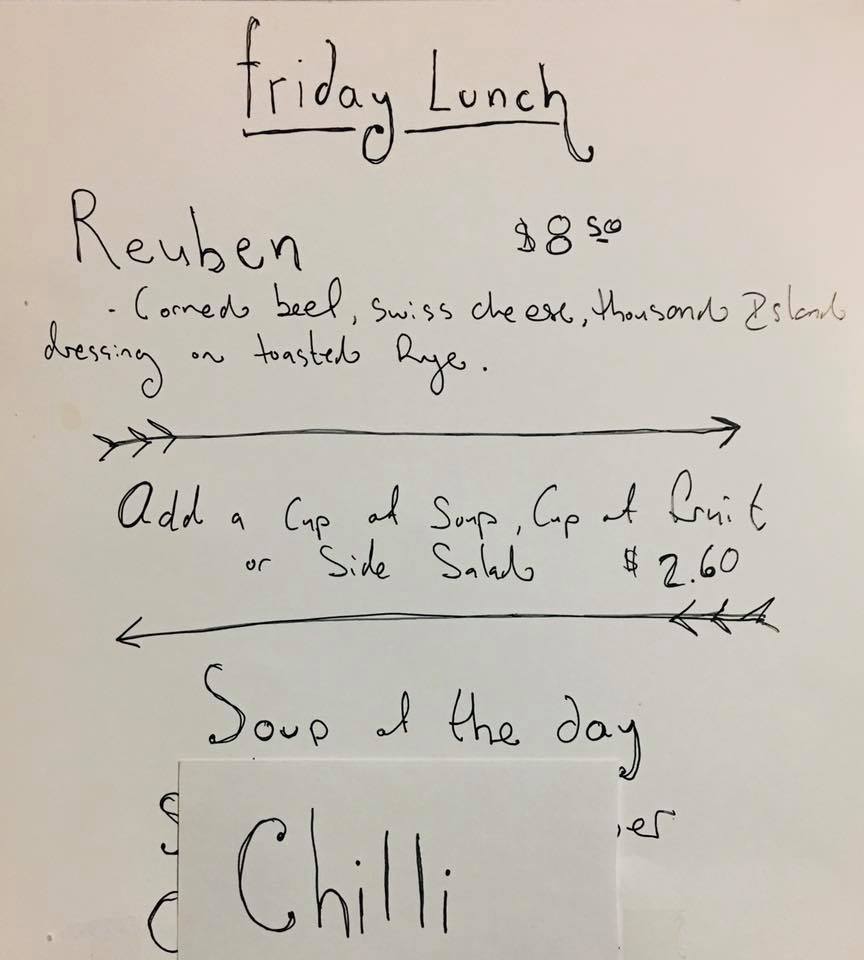 Friday Lunch
Reuben $8 50
- Corned beef, swiss cheese, thousand Island
dressing on toasted Rye.
Add a Cup of Soup, Cup of fruit
or Side Salad $2.60
Soup of the day
Chilli